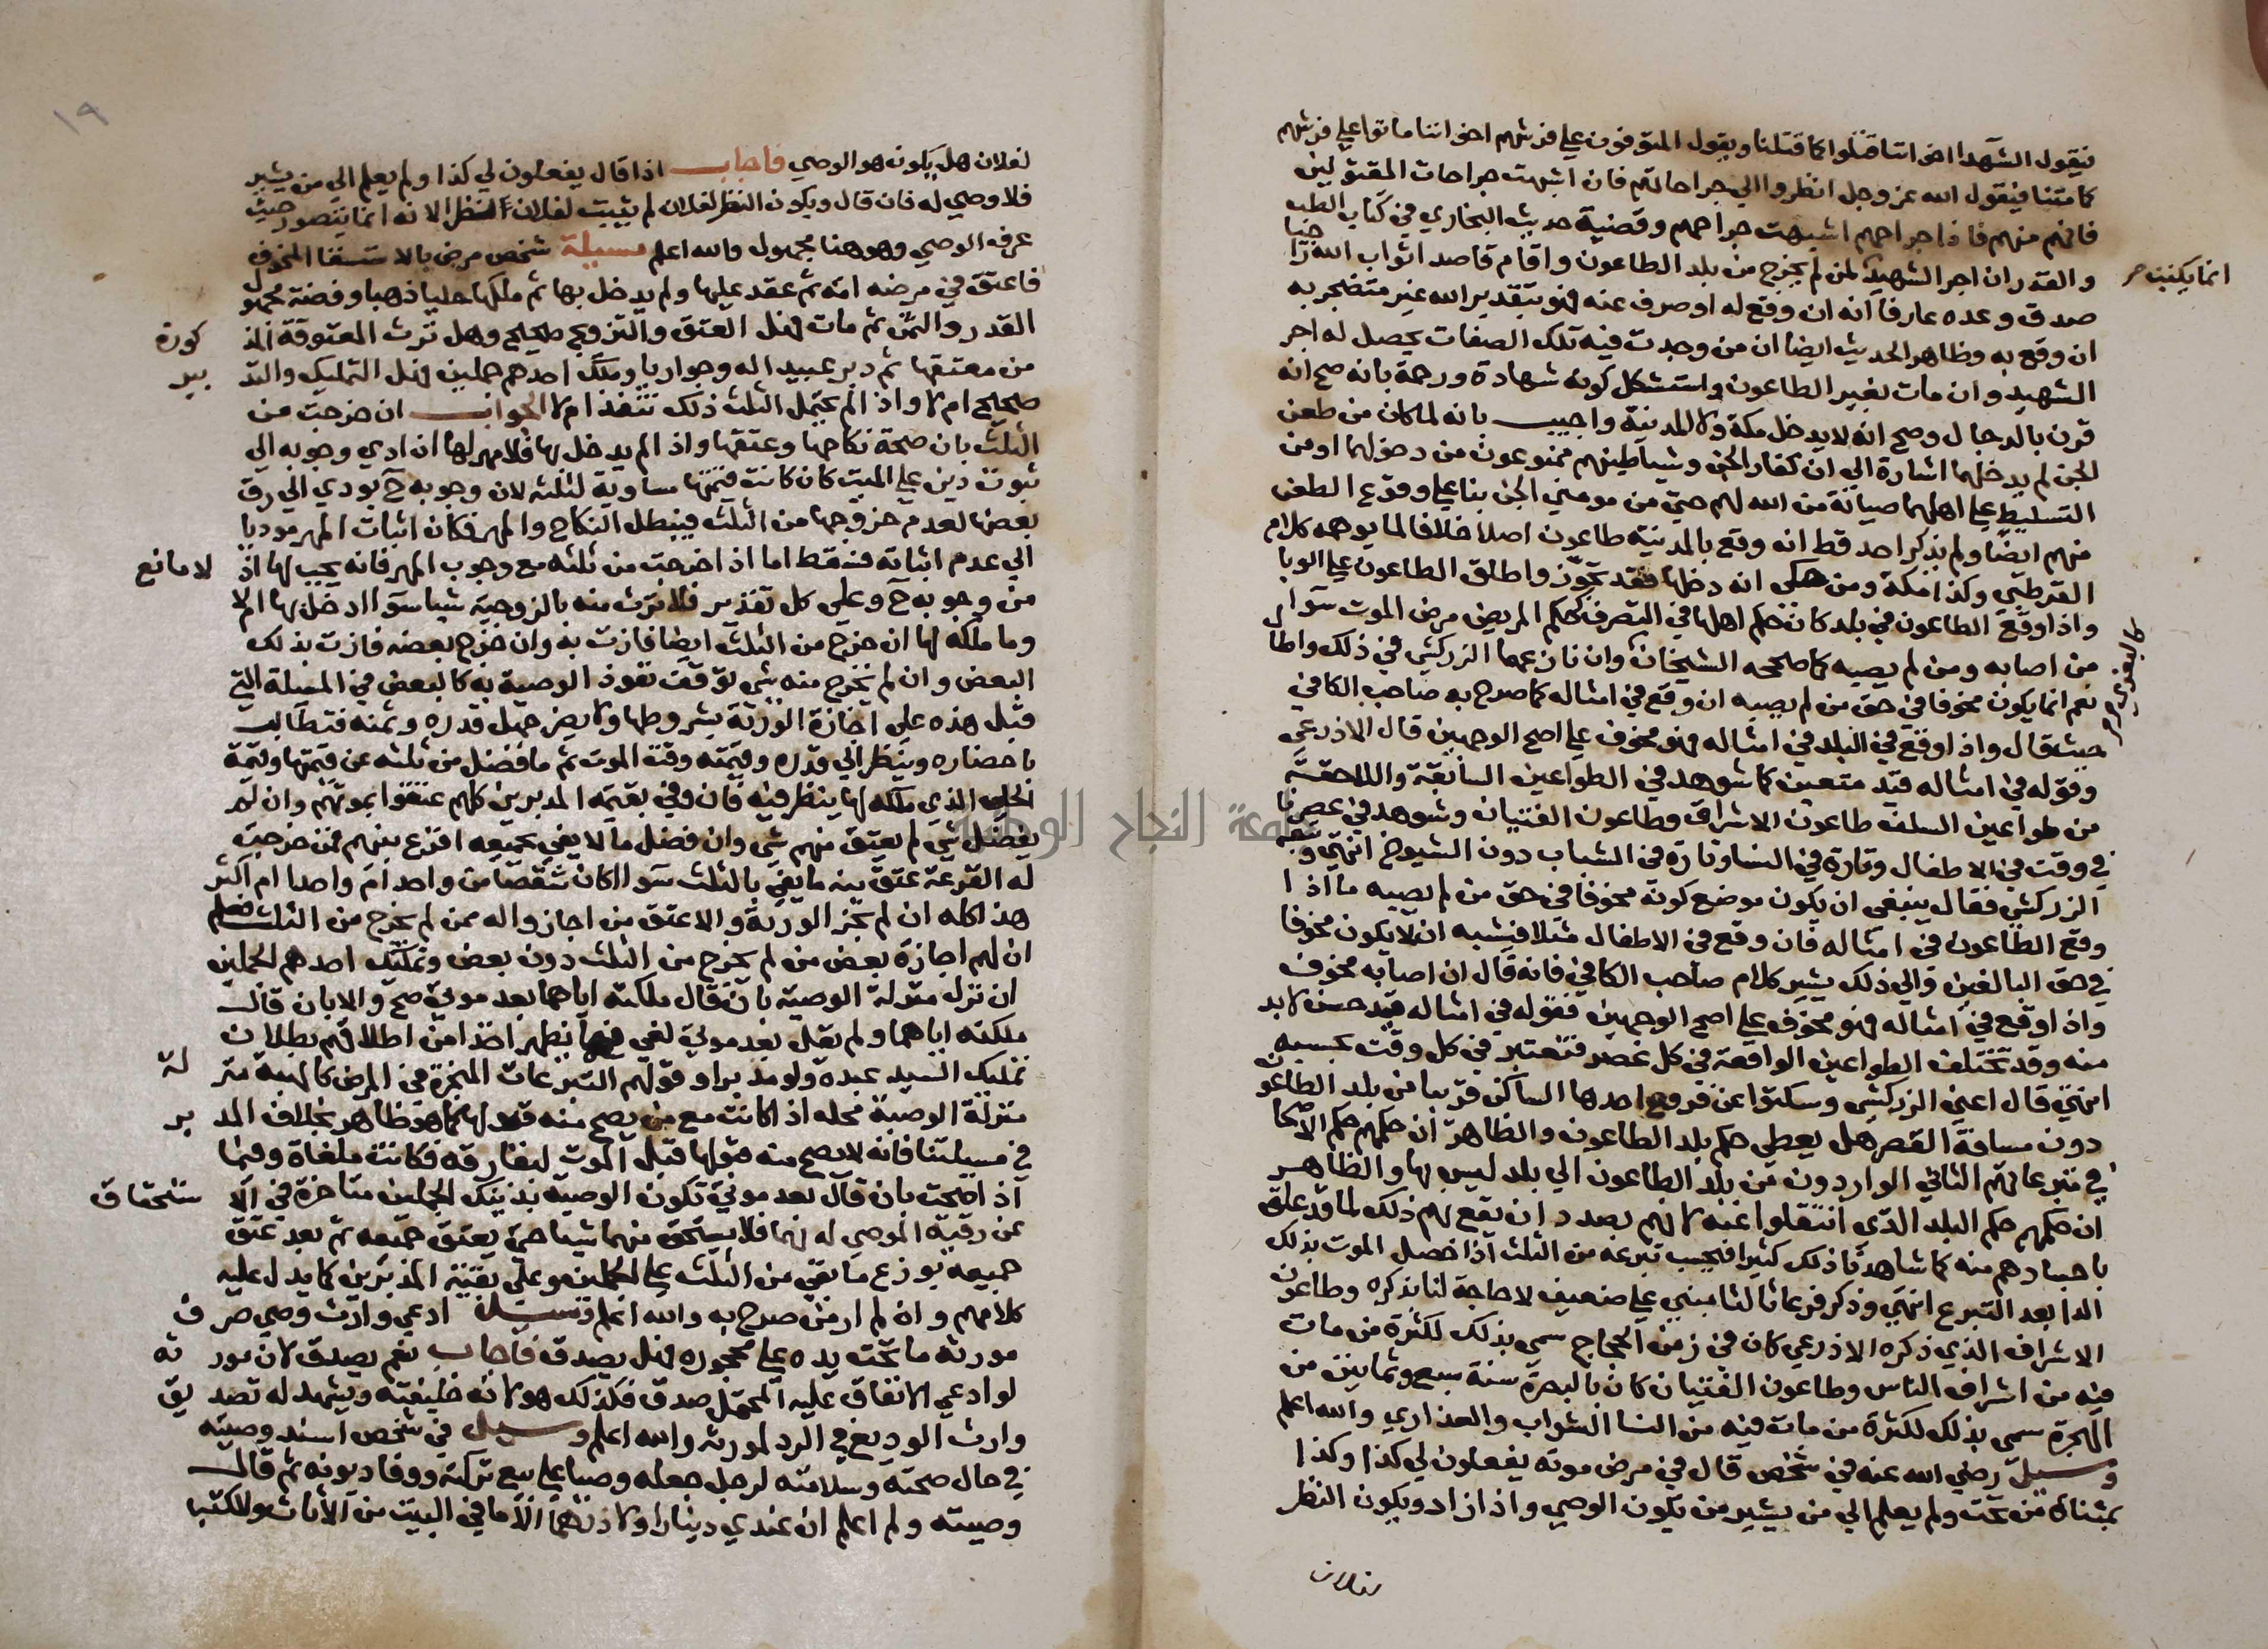 فيقول الشهدا اخواننا قتلوا كما قتلنا ويقول المتوفون علي فرشهم اخواننا ماتوا علي فرشهم
كما متنا فيقول الله عز وجل انظروا الي جراحاتهم فان اشبهت جراحات المقتولين
فانهم منهم فاذا جراحهم اشبهت جراحهم وقضية حديث البخاري في كتاب الطب
والقدر ان اجر الشهيد لمن لم يخرج من بلد الطاعون واقام قاصدا ثواب الله راجيا
انما يكتب
صدق وعده عارفا انه ان وقع له او صرف عنه فهو بتقدير الله غير متضجر به
ان وقع به وظاهر الحديث ايضا ان من وجدت فيه تلك الصفات يحصل له اجر
الشهيد وان مات بغير الطاعون واستشكل كونه شهادة ورحمة بانه صح انه
قرن بالدجال وصح انه لا يدخل مكة ولا المدينة واجيب بانه لما كان من طعن
الجن لم يدخلها اشارة الي ان كفار الجن وشياطينهم ممنوعون من دخولها او من
التسليط علي اهلها صيانة من الله لهم حتي من مومني الجن بنا علي وقوع الطعن
منهم ايضا ولم يذكر احد قط انه وقع بالمدينة طاعون اصلا خلافا لما يوهمه كلام
القرطبي وكذا مكة ومن حكي انه دخلها فقد تجوز واطلق الطاعون علي الوبا
واذا وقع الطاعون في بلد كان حكم اهلها في التصرف كحكم المريض مرض الموت سوا
من اصابه ومن لم يصبه كما صححه الشيخان وان نازعهما الزركشي في ذلك واطال
نعم انما يكون مخوفا في حق من لم يصبه ان وقع في امثاله كما صرح به صاحب الكافي
حيث قال واذا وقع في البلد في امثاله فهو مخوف علي اصح الوجهين قال الاذرعي
وقوله في امثاله قيد متعين كما شوهد في الطواعين السابقة واللاحقة
من طواعين السلف طاعون الاشراف وطاعون الفتيان وشوهد في عصرنا
في وقت في الاطفال وتارة في النسا وتارة في الشباب دون الشيوخ انتهي وتبعه
الزركشي فقال ينبغي ان يكون موضع كونه مخوفا في حق من لم يصبه ما اذا
وقع الطاعون في امثاله فان وقع في الاطفال مثلا فيشبه ان لا يكون مخوفا
في حق البالغين والي ذلك يشير كلام صاحب الكافي فانه قال ان اصابه مخوف
واذا وقع في امثاله فهو مخوف علي اصح الوجهين فقوله في امثاله قيد حسن لا بد
منه وقد تختلف الطواعين الواقعة في كل عصر فتعتبر في كل وقت بحسبه
انتهي قال اعني الزركشي وسكتوا عن فروع احدها الساكن قريبا من بلد الطاعون
دون مسافة القصر هل يعطي حكم بلد الطاعون والظاهر ان حكمهم حكم الاصحا
في تبرعاتهم الثاني الواردون من بلد الطاعون الي بلد ليس بها والظاهر
ان حكمهم حكم البلد الذي انتقلوا عنه لانهم بصدد ان يقع لهم ذلك لما قد علق
باجسادهم منه كما شاهدنا ذلك كثيرا فيحسب تبرعه من الثلث اذا حصل الموت بذلك
الدا بعد التبرع انتهي وذكر فرعا ثالثا مبني علي ضعيف لا حاجة لنا بذكره وطاعون
الاشراف الذي ذكره الاذرعي كان في زمن الحجاج سمي بذلك لكثرة من مات
فيه من اشراف الناس وطاعون الفتيان كان بالبصرة سنة سبع وثمانين من
الهجرة سمي بذلك لكثرة من مات فيه من النسا الشواب والعذاري والله اعلم
وسيل رضي الله عنه في شخص قال في مرض موته يفعلون لي كذا وكذا
بمثناة من تحت ولم يعلم الي من يشير من يكون الوصي واذا زاد ويكون النظر
لفلان
١٩
لفلان هل يكون هو الوصي فاجاب اذا قال يفعلون لي كذا ولم يعلم الي من يشير
فلا وصي له فان قال ويكون النظر لفلان لم يثبت لفلان النظر لانه انما يتصور حيث
عرف الوصي وهو هنا مجهول والله اعلم مسيلة شخص مرض بالاستسقا المخوف
فاعتق في مرضه امة ثم عقد عليها ولم يدخل بها ثم ملكها حليا ذهبا وفضة مجهول
القدر والثمن ثم مات فهل العتق والتزويج صحيح وهل ترث المعتوقة المذكورة
من معتقها ثم دبر عبيدا له وجواريا وملك احدهم حملين فهل التمليك والتدبير
صحيح ام لا واذا لم يحتمل الثلث ذلك تنفذ ام لا الجواب ان خرجت من
الثلث بان صحة نكاحها وعتقها واذا لم يدخل بها فلا مهر لها ان ادي وجوبه الي
ثبوت دين علي الميت كان كانت قيمتها مساوية لثلثه لان وجوبه ح يودي الي رق
بعضها لعدم خروجها من الثلث فيبطل النكاح والمهر فكان اثبات المهر موديا
الي عدم اثباته فسقط اما اذا خرجت من ثلثه مع وجوب المهر فانه يجب لها اذ لا مانع
من وجوبه ح وعلي كل تقدير فلا ترث منه بالزوجية شيا سوا ادخل بها ام لا
وما ملكه لها ان خرج من الثلث ايضا فازت به وان خرج بعضه فازت بذلك
البعض وان لم يخرج منه شي توقفت نفوذ الوصية به كالبعض في المسلة التي
قبل هذه علي اجازة الورثة بشروطها ولا يضر جهل قدره وثمنه فتطالب
باحضاره وينظر الي قدره وقيمته وقت الموت ثم ما فضل من ثلثه عن قيمتها وقيمة
الحلي الذي ملكه لها ينظر فيه فان وفي بقيمة المدبرين كلهم عتقوا بموته وان لم
يفضل شي لم يعتق منهم شي وان فضل ما لا يفي بجميعه اقرع بينهم فمن خرجت
له القرعة عتق منه ما يفي بالثلث سوا اكان شقصا من واحد ام واحدا ام اكثر
هذا كله ان لم تجز الورثة والا عتق من اجازوا له ممن لم يخرج من الثلث
ان لهم اجازة بعض من لم يخرج من الثلث دون بعض وتمليك احدهم الحملين
ان نزل منزلة الوصية بان قال ملكته اياهما بعد موتي صح والا بان قال
ملكته اياهما ولم يقل بعد موتي لغي فيما يظهر اخذا من اطلاقهم بطلان
تمليك السيد عبده ولو مدبرا وقولهم التبرعات المنجزة في المرض كالهبة منزلة
منزلة الوصية محله اذا كانت مع من يصح منه قبولها كما هو ظاهر بخلاف المدبر
في مسيلتنا فانه لا يصح منه قبولها قبل الموت لبقا رقه فكانت ملغاة وفيما
اذا صحت بان قال بعد موتي تكون الوصية بذينك الحملين متاخرة في الاستحقاق
عن رقبة الموصي له بهما فلا يستحق منهما شيا حتي يعتق جميعه ثم بعد عتق
جميعه يوزع ما بقي من الثلث علي الحملين وعلي بقية المدبرين كما يدل عليه
كلامهم وان لم ار من صرح به والله اعلم وسيل ادعي وارث وصي صرف
مورثه ما تحت يده علي محجوره فهل يصدق فاجاب نعم يصدق لان مورثه
لو ادعي الانفاق عليه المحتمل صدق فكذلك هو لانه خليفته ويشهد له تصديق
وارث الوديع في الرد لمورثه والله اعلم وسيل في شخص اسند وصيته
في حال صحته وسلامته لرجل جعله وصيا علي بيع تركته ووفا ديونه ثم قال
وصيته ولم اعلم ان عندي دينارا ولا درهما الا ما في البيت من الاثاث والكتب